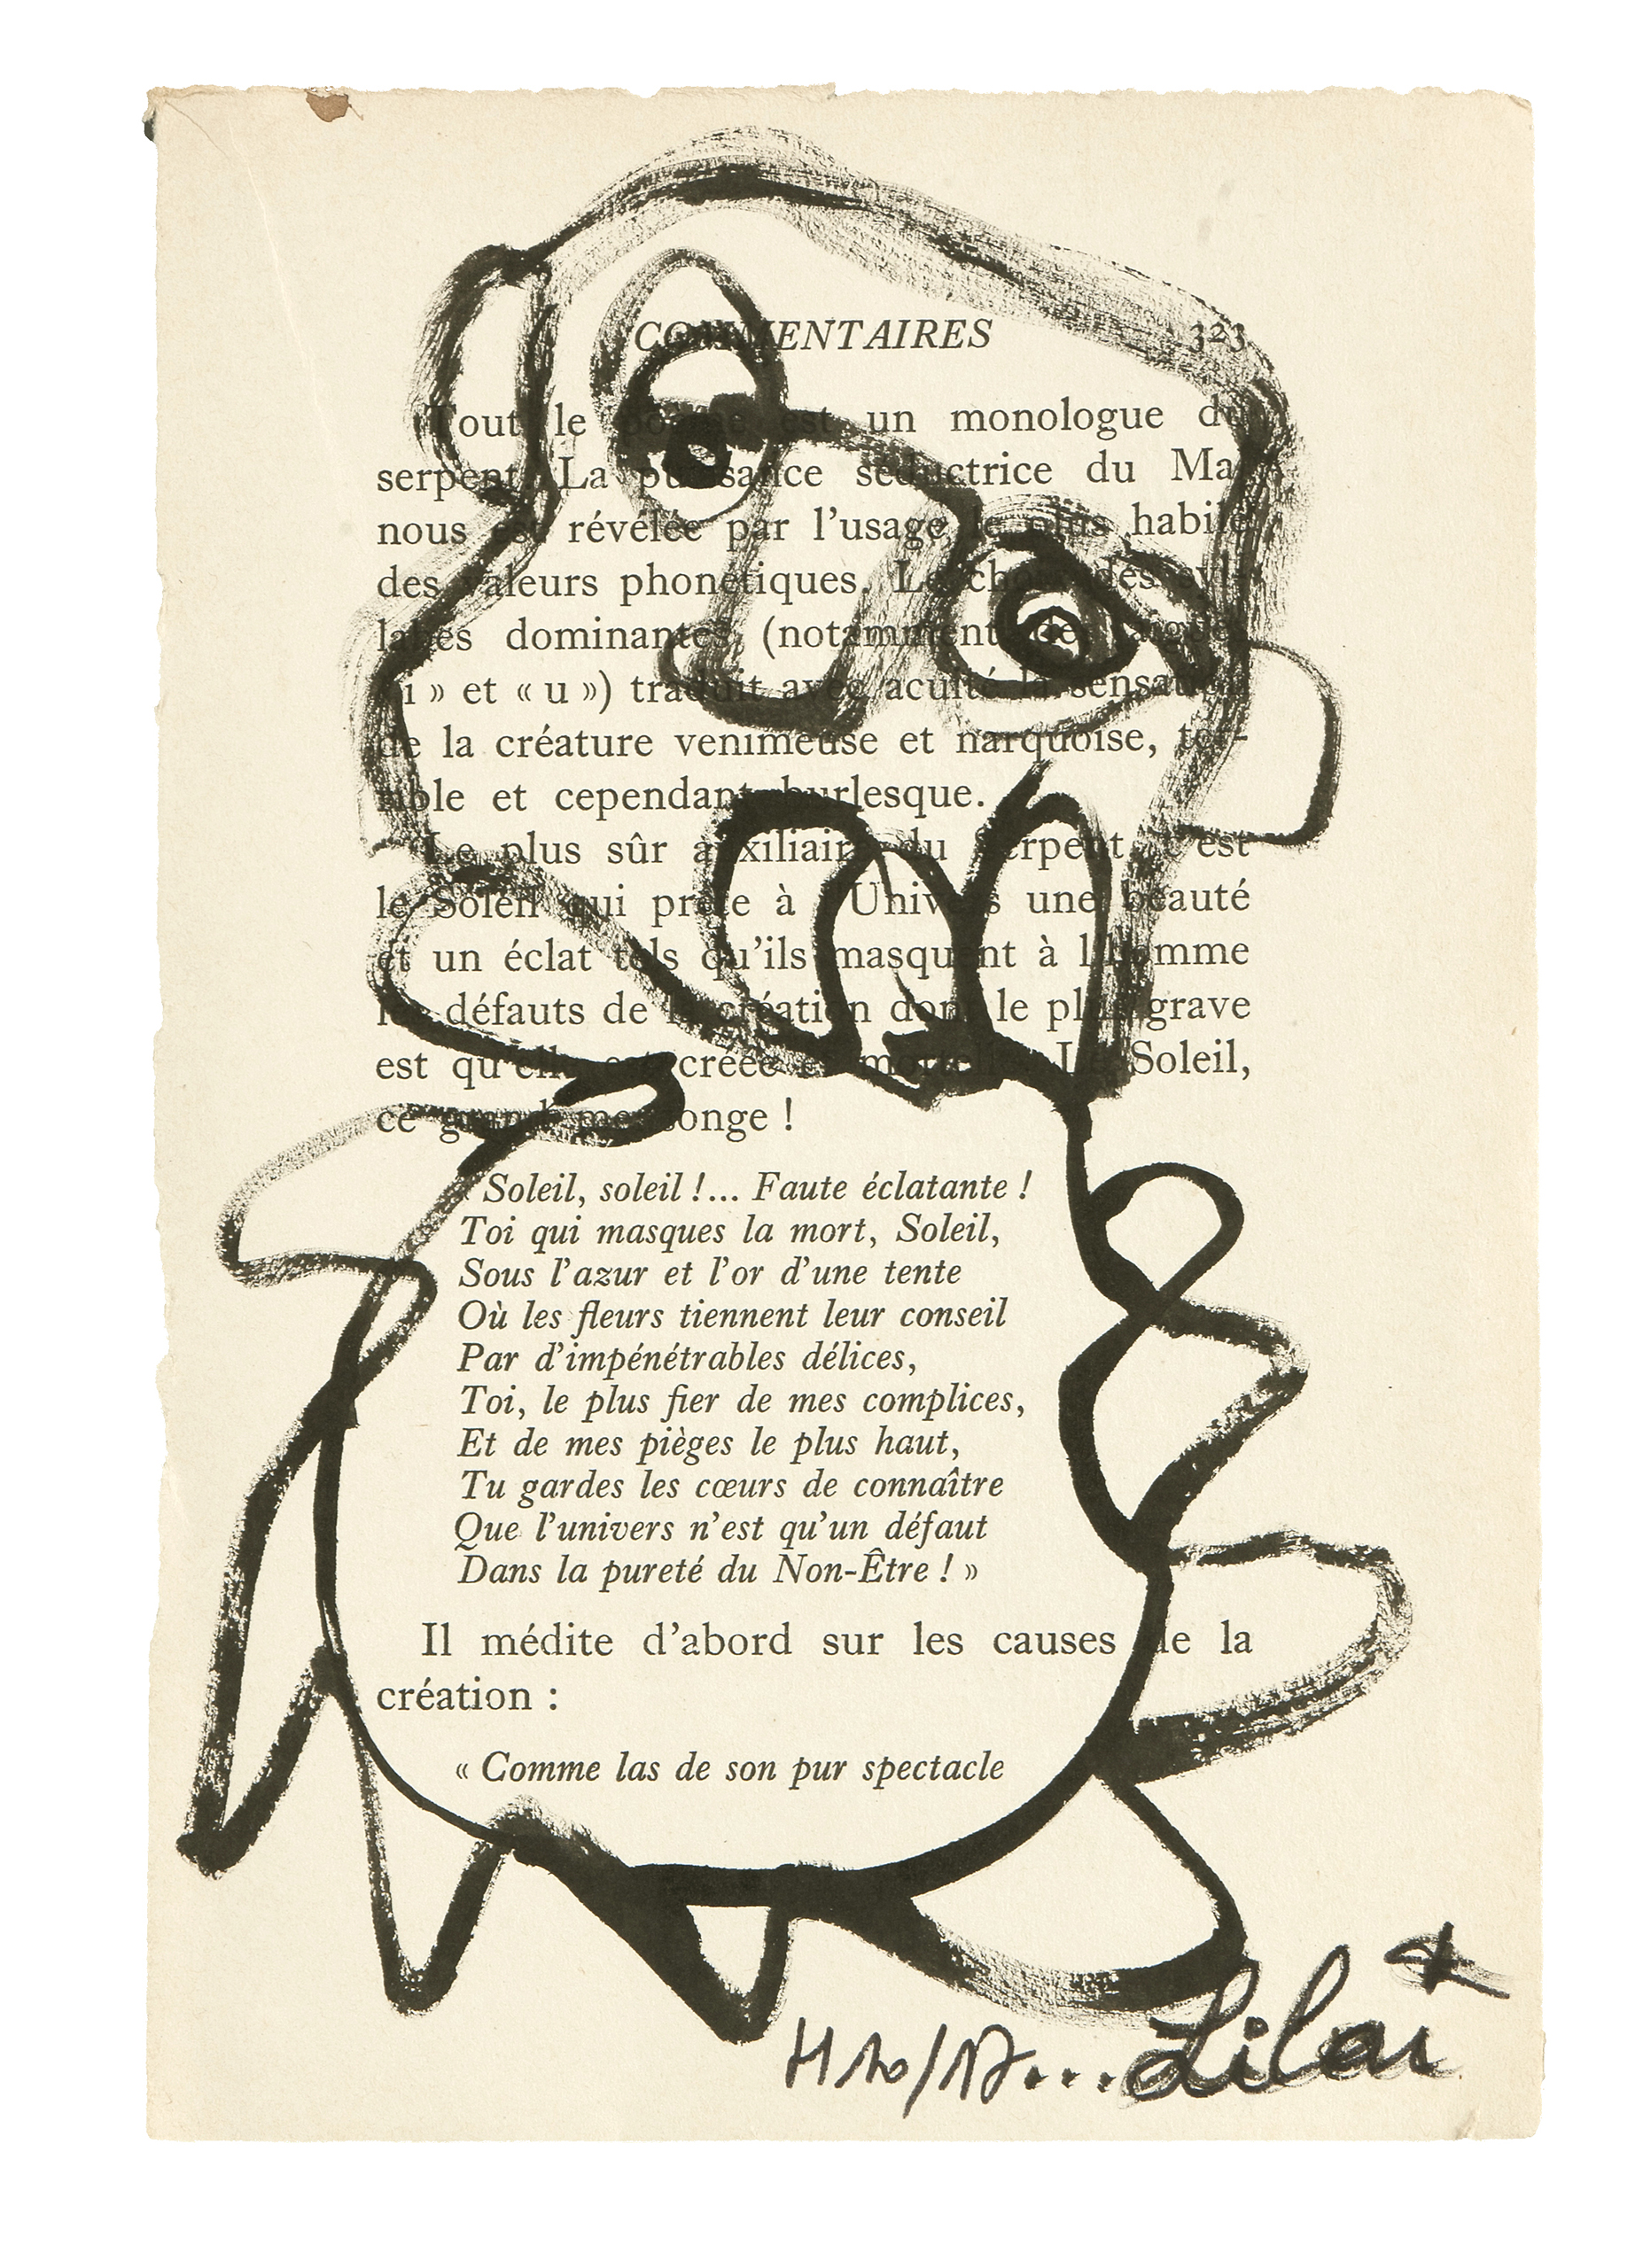 COMMENTAIRES 323
Tout le poème est un monologue du
serpent. La puissance séductrice du Mal
nous est révélée par l'usage le plus habile
des valeurs phonétiques. Le choix des syl-
labes dominantes (notamment des aiguës
« i » et « u ») traduit avec acuité la sensation
de la créature venimeuse et narquoise, ter-
rible et cependant burlesque.
Le plus sûr auxiliaire du Serpent, c'est
le Soleil qui prête à l'Univers une beauté
et un éclat tels qu'ils masquent à l'homme
les défauts de la création dont le plus grave
est qu'elle est créée et mortelle. Le Soleil,
ce grand mensonge !
« Soleil, soleil !... Faute éclatante !
Toi qui masques la mort, Soleil,
Sous l'azur et l'or d'une tente
Où les fleurs tiennent leur conseil
Par d'impénétrables délices,
Toi, le plus fier de mes complices,
Et de mes pièges le plus haut,
Tu gardes les cœurs de connaître
Que l'univers n'est qu'un défaut
Dans la pureté du Non-Être ! »
Il médite d'abord sur les causes de la
création :
« Comme las de son pur spectacle